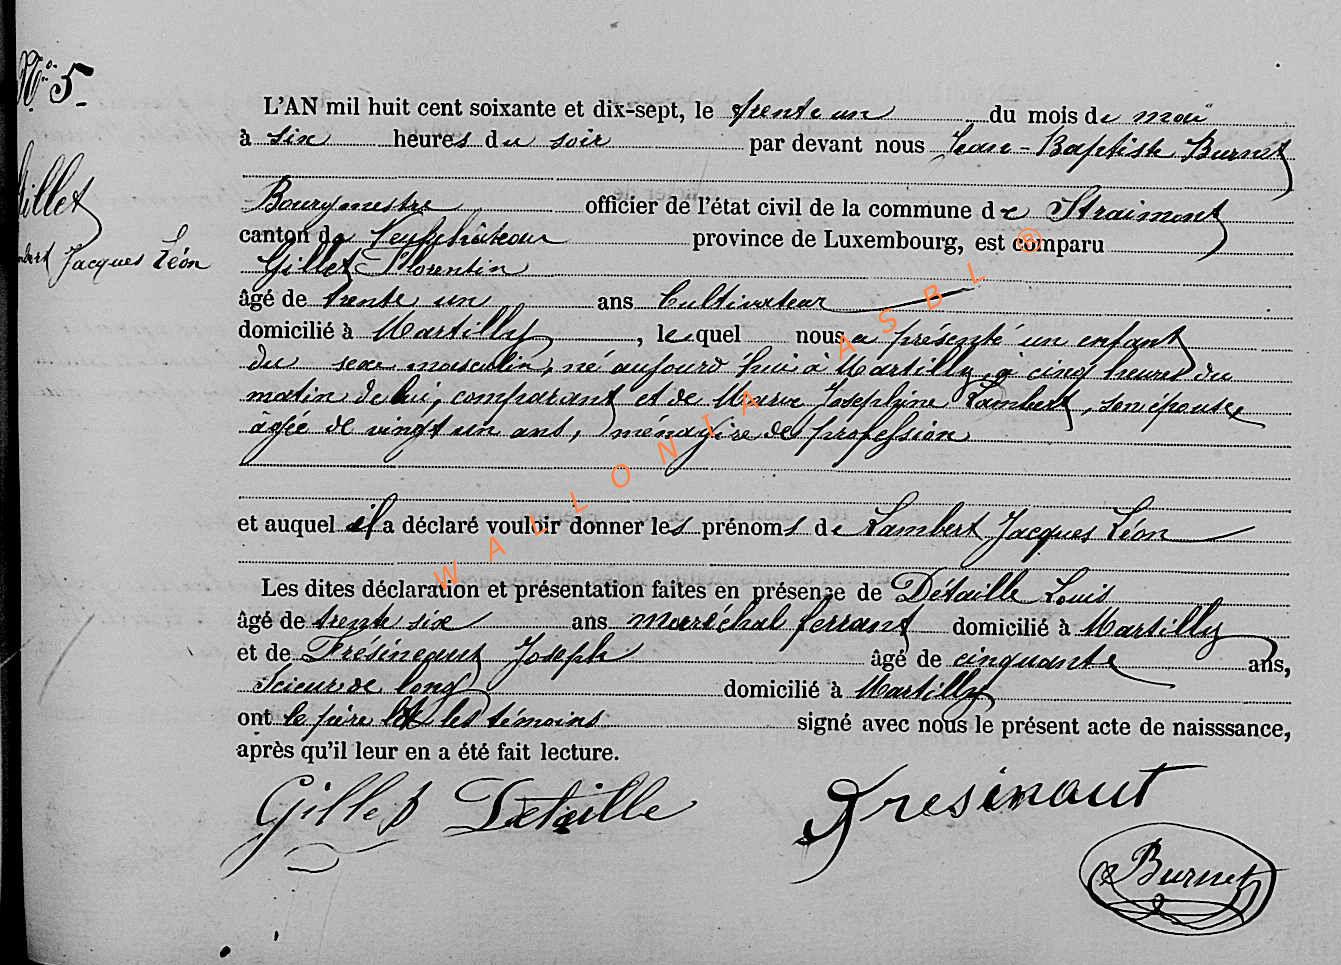 N° 5
L'AN mil huit cent soixante et dix-sept, le trente un du mois de mai
à six heures du soir par devant nous Jean-Baptiste Burnet
Gillet
Bourgmestre officier de l'état civil de la commune de Straimont
canton de Neufchâteau province de Luxembourg, est comparu
Lambert Jacques Léon
Gillet Florentin
âgé de trente un ans Cultivateur
domicilié à Martilly, lequel nous a présenté un enfant
du sexe masculin, né aujourd'hui à Martilly à cinq heures du
matin de lui, comparant et de Marie Josephine Lambert, son épouse
âgée de vingt un ans, ménagère de profession
et auquel il a déclaré vouloir donner les prénoms de Lambert Jacques Léon
Les dites déclaration et présentation faites en présense de Détaille Louis
âgé de trente six ans maréchal ferrant domicilié à Martilly
et de Frésineaut Joseph âgé de cinquante ans,
Scieur de long domicilié à Martilly
ont le père et les témoins signé avec nous le présent acte de naisssance,
après qu'il leur en a été fait lecture.
Gillet Detaille Fresinaut
Burnet
WALLONIA ASBL ®